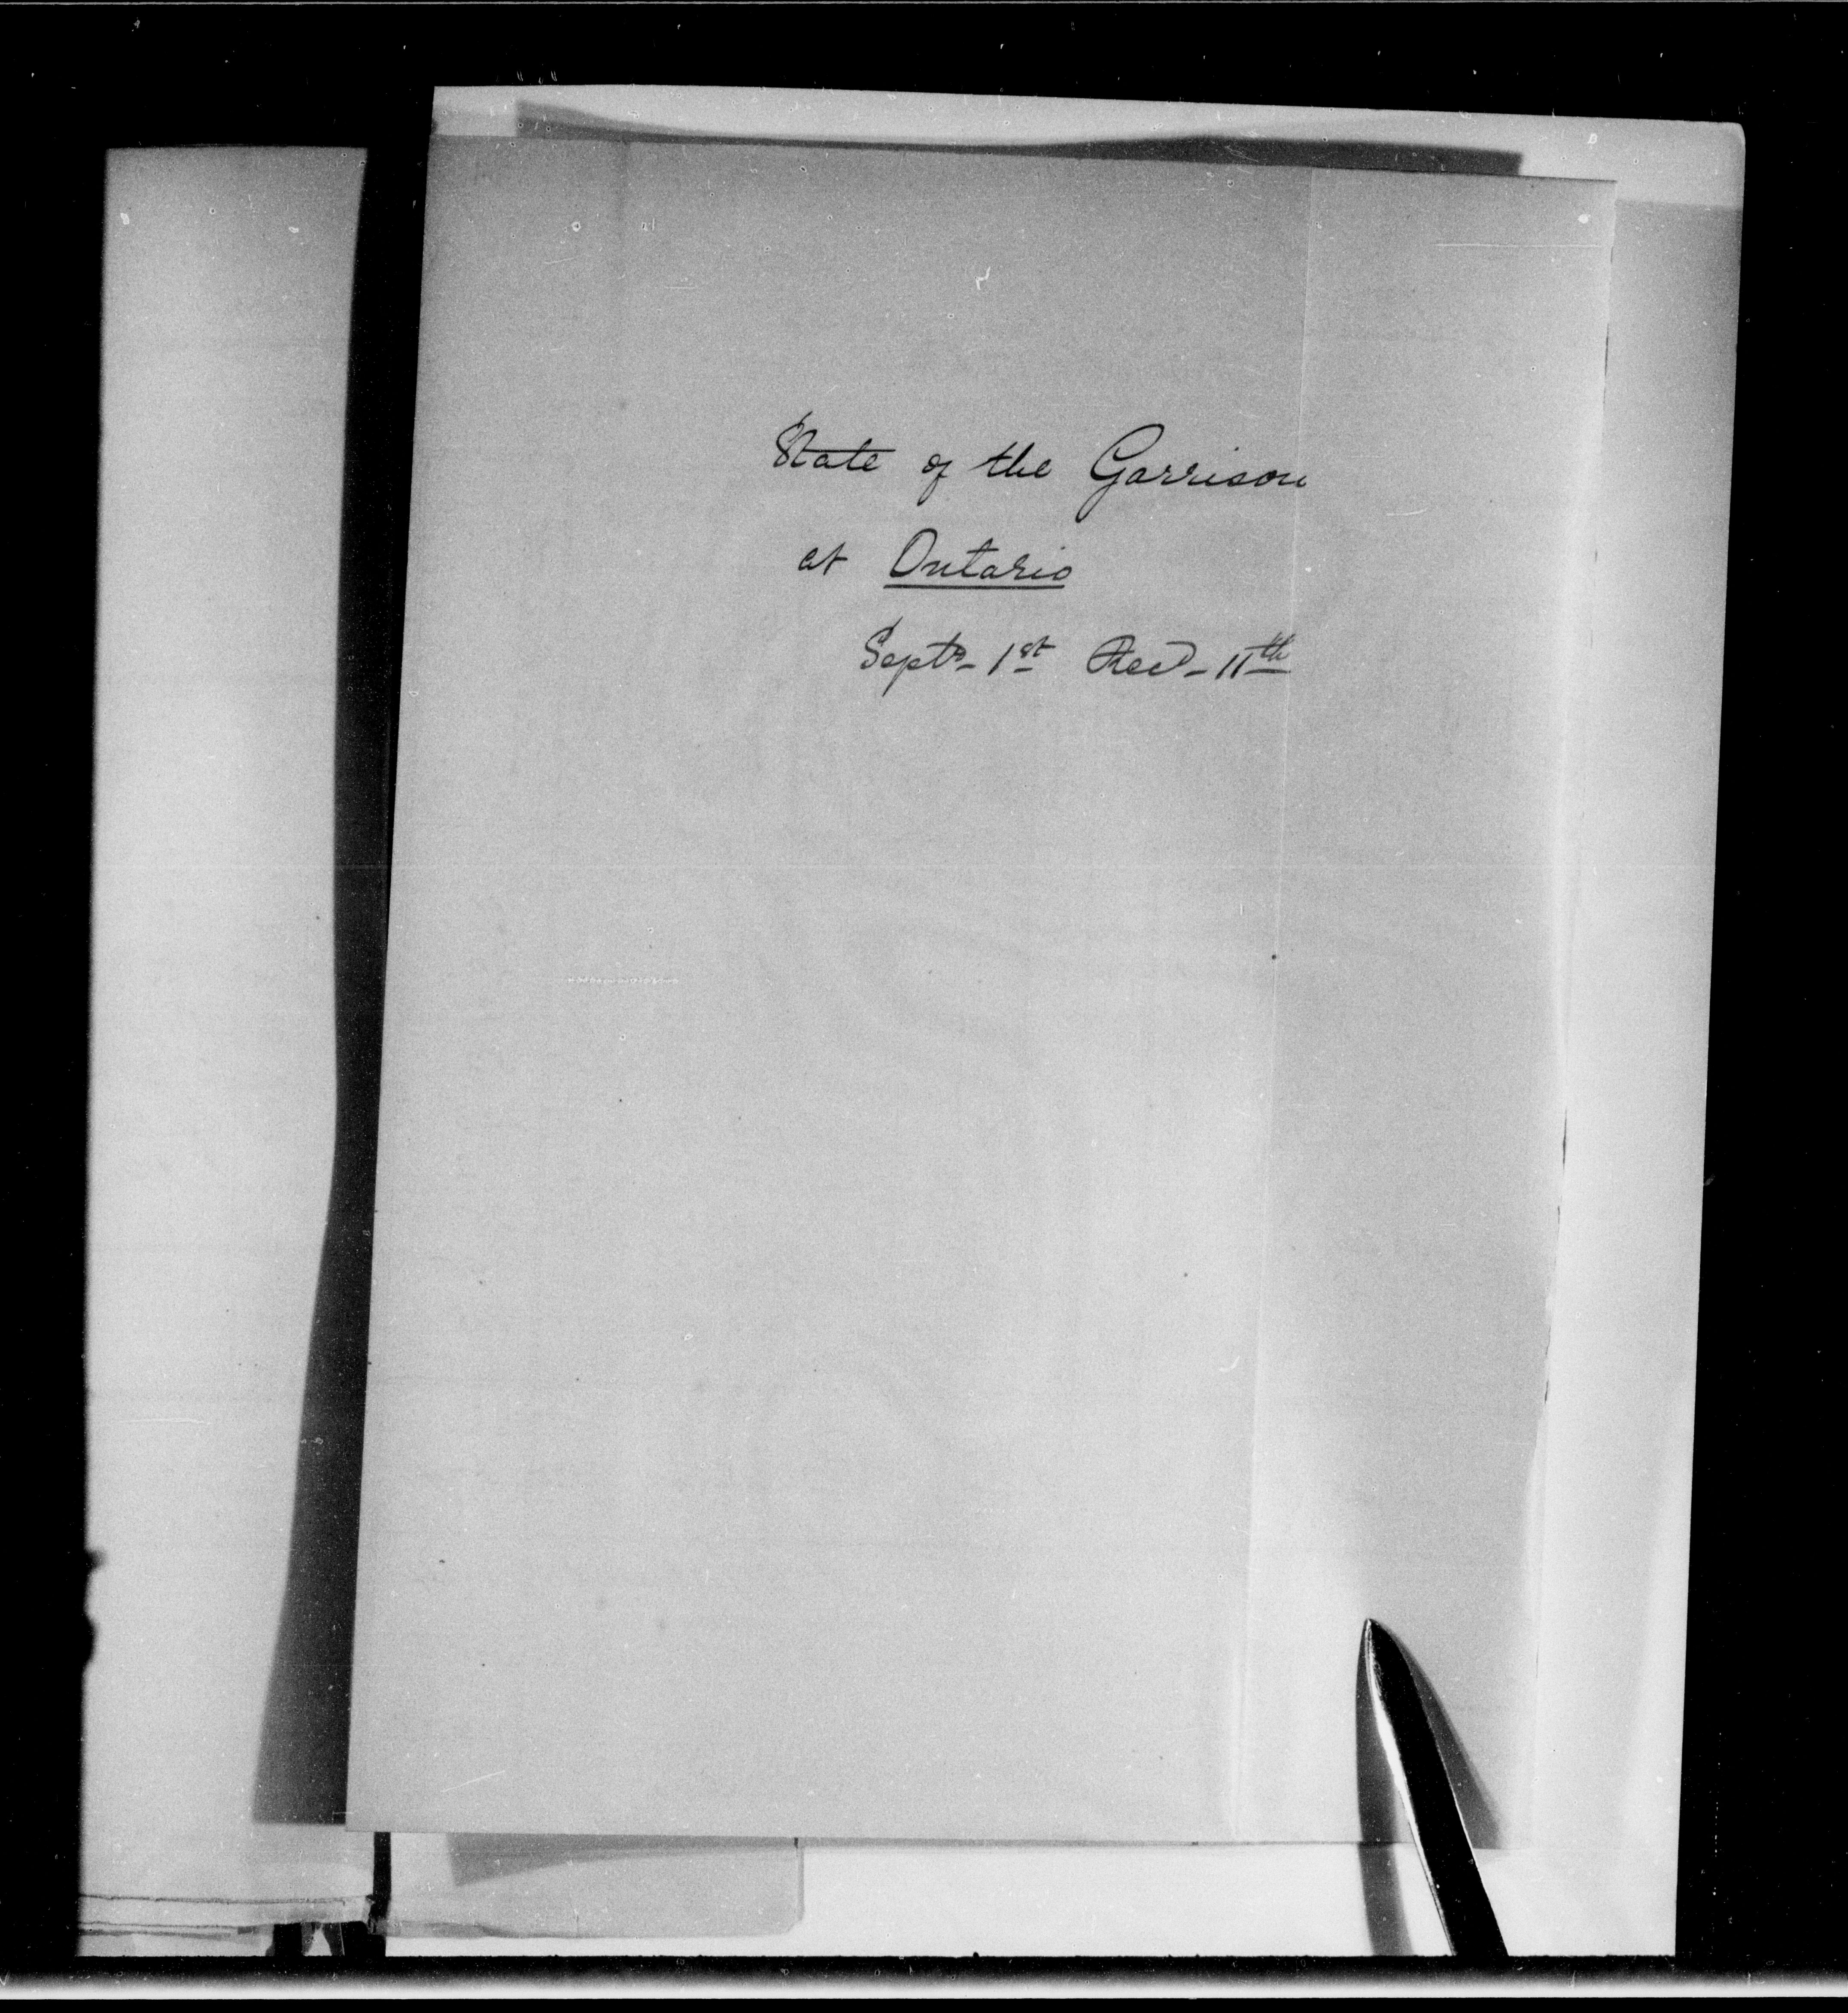 State of the Garrison
at Ontario
Septr. 1st Recd. 11th